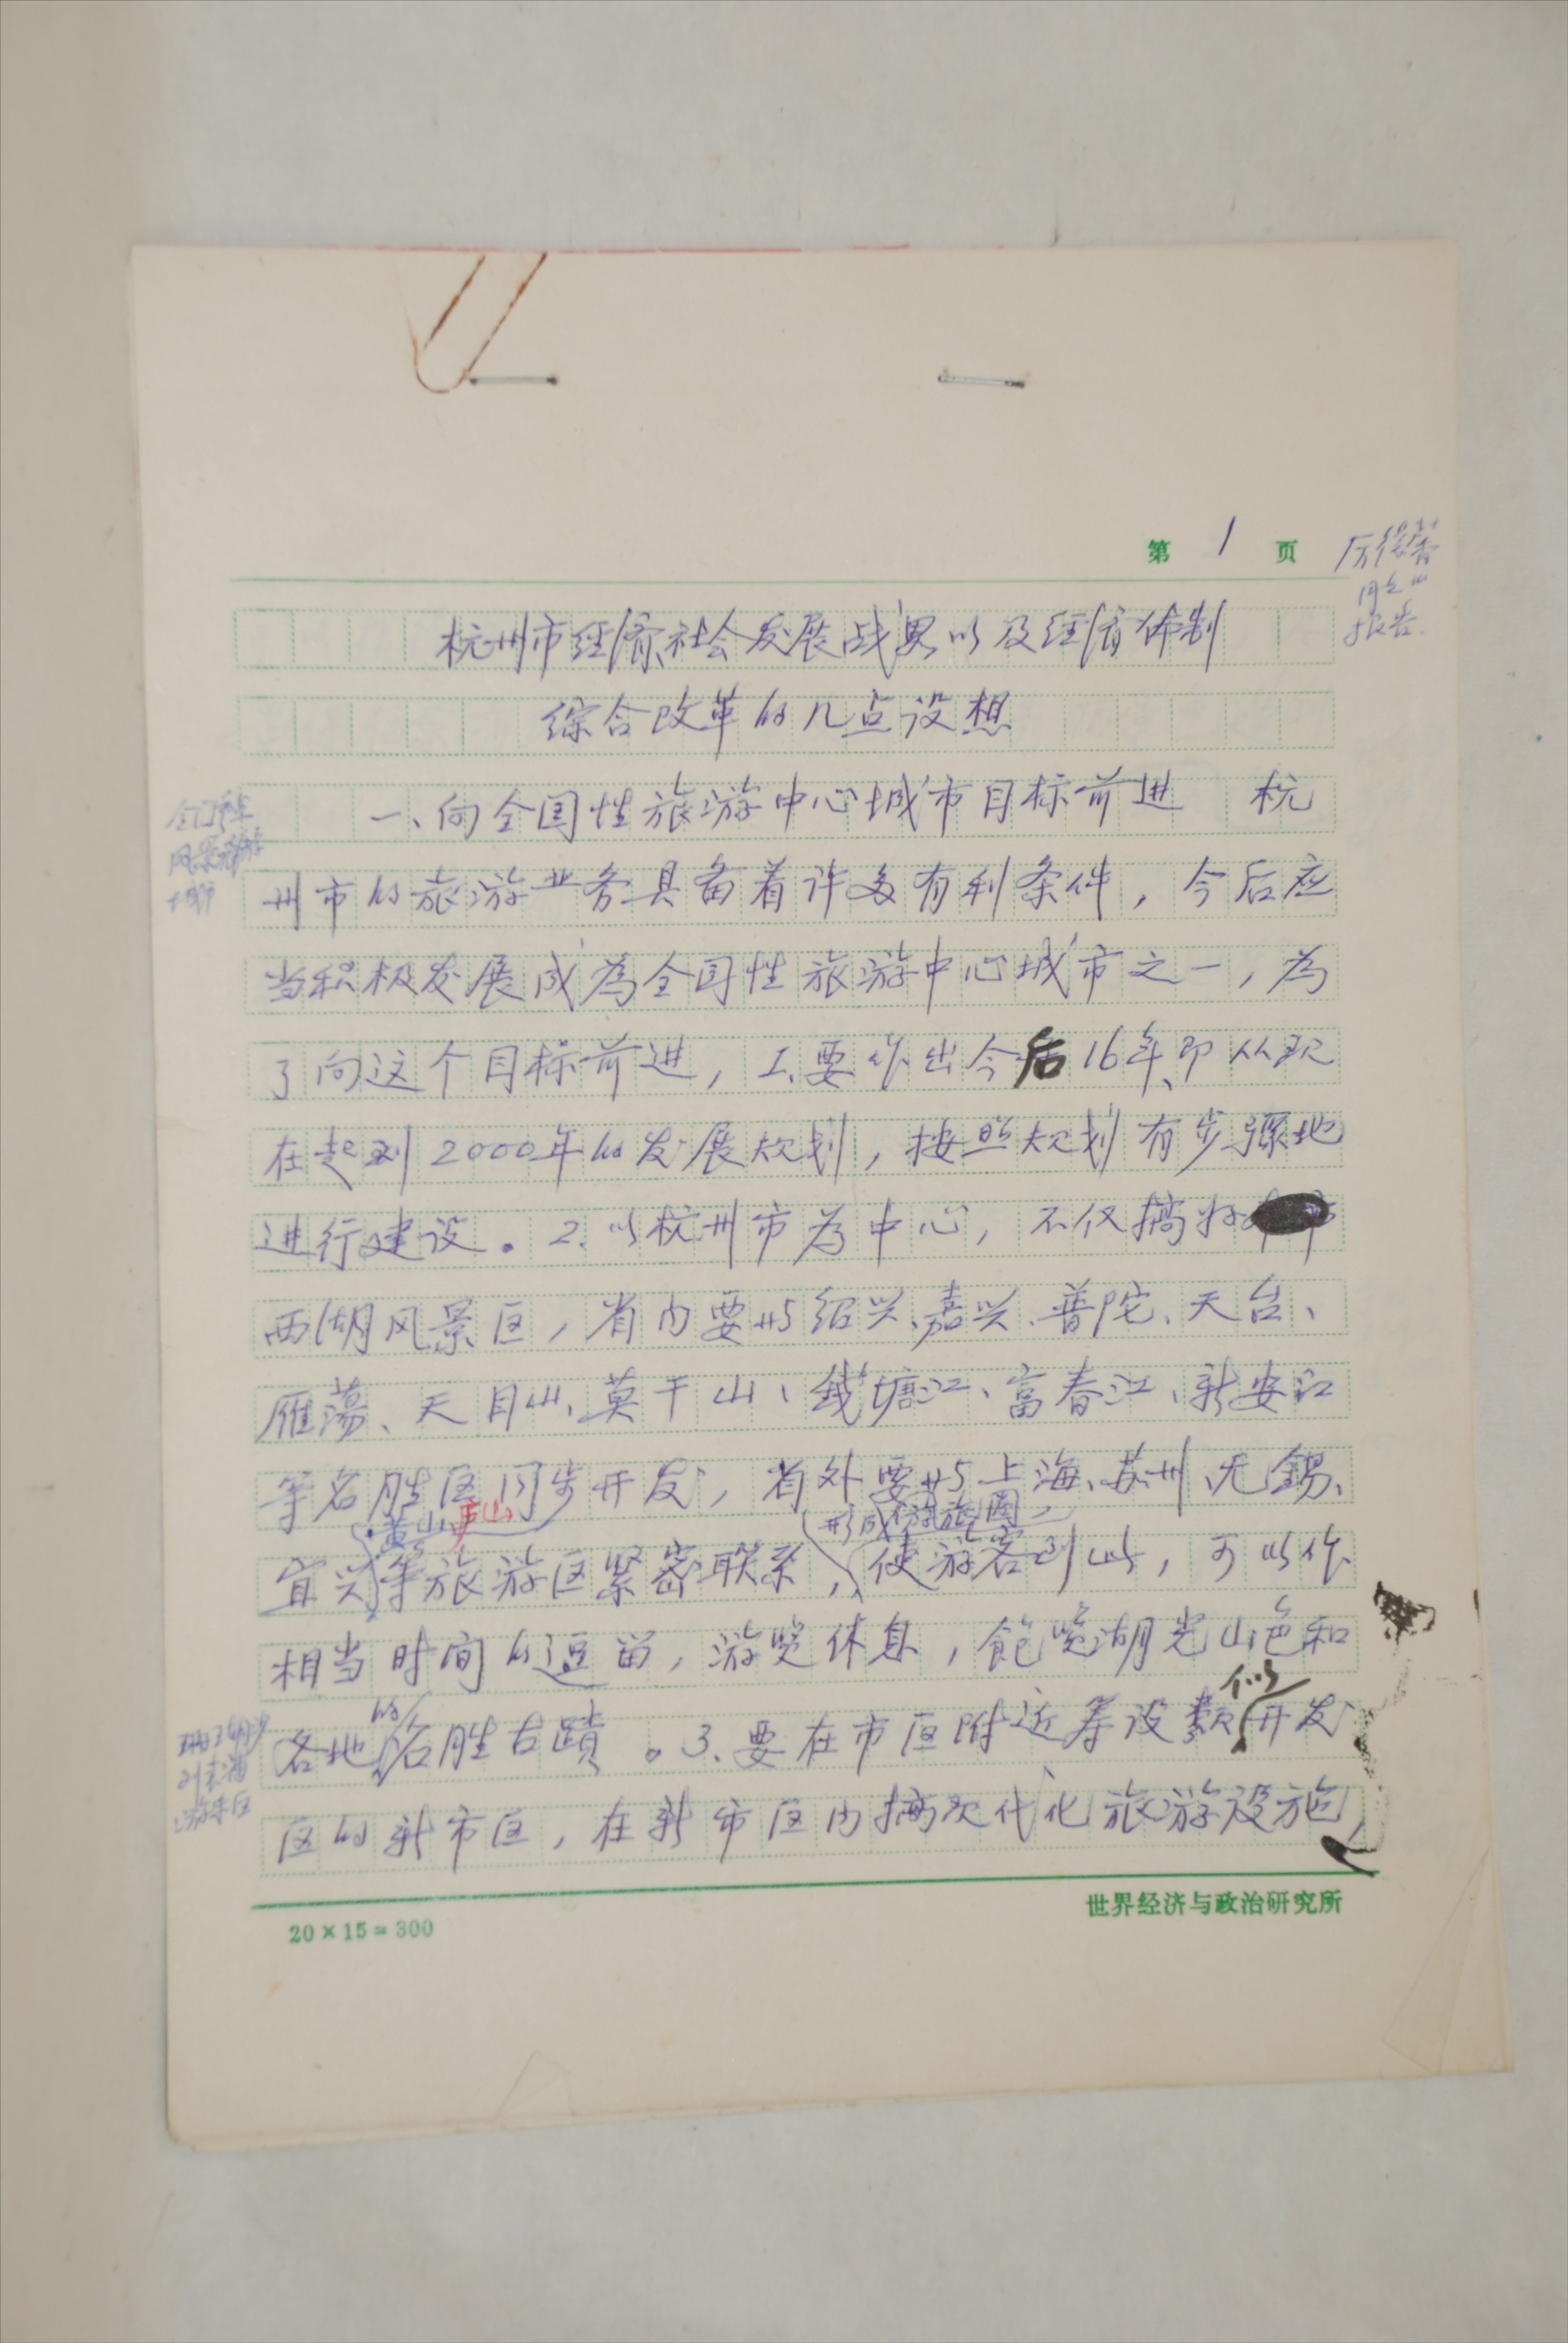 第 1 页
报告.
杭州市经济社会发展战略以及经济体制
综合改革的几点设想
一、向全国性旅游中心城市目标前进 杭
州市的旅游业务具备着许多有利条件，今后应
当积极发展成为全国性旅游中心城市之一，为
了向这个目标前进，1、要作出今后16年、即从现
在起到2000年的发展规划，按照规划有步骤地
进行建设。2.以杭州市为中心，不仅搞好
西湖风景区，省内要与绍兴、嘉兴、普陀、天台、
雁荡、天目山、莫干山、錢塘江、富春江、新安江
等名胜区同步开发，省外要与上海、苏州、无錫、
宜兴、黄山、庐山等旅游区紧密联系，形成旅游圈，使游客到此，可以作
相当时间的逗留，游览休息，飽览湖光山色和
各地的名胜古蹟。3、要在市区附近筹设类似开发
区的新市区，在新市区内搞现代化旅游设施，
20×15=300
世界经济与政治研究所